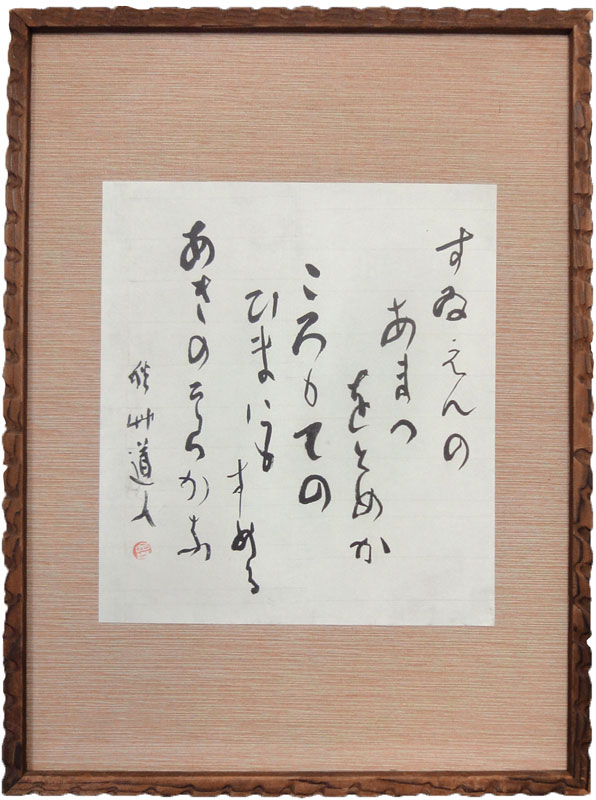 すゐえんの
あまつ
をとめか
ころもての
ひまにも
すめる
あきのそらかな
秋艸道人